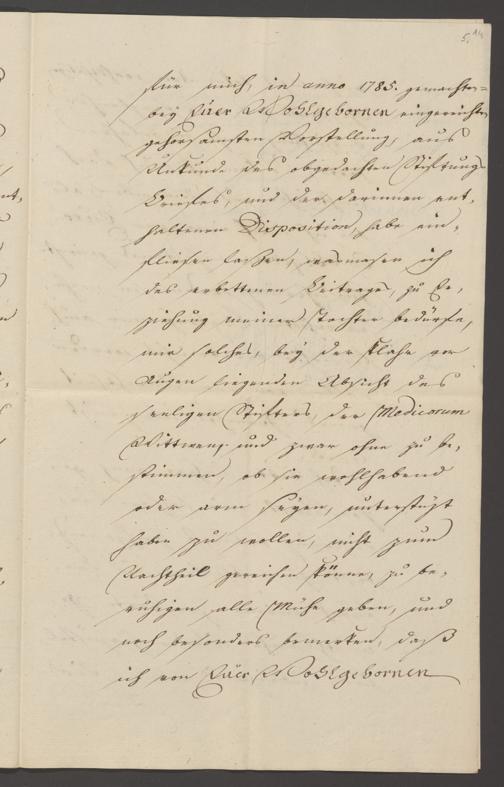 für mich, in anno 1785. gemachten
bey Euer Wohlgebornen eingereichten
gehorsamsten Vorstellung, aus
Urkunde des obgedachten Stiftungs
Briefes, und der darinnen ent,
haltenen Disposition, habe ein,
fliesen lassen, wasmasen ich
des erbettenen Beitrages, zu Er,
ziehung meiner Tochter bedürfe,
mir solches, bey der klahr vor
Augen liegenden Absicht des
seeligen Stifters, der Medicorum
Wittwen, und zwar ohne zu be,
stimmen, ob sie wohlhabend
oder arm seyen, unterstüzt
haben zu wollen, nicht zum
Nachtheil gereichen könne, zu be,
ruhigen alle Mühe geben, und
noch besonders bemerken, daß
ich von Euer Wohlgebornen